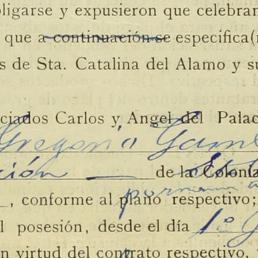 oligarse y expusieron que celebran
que a continuación se especifica(
s de Sta. Catalina del Alamo y su
ciados Carlos y Angel del Palac
Gregorio
ción — de la Colonia
, conforme al plano respectivo;
l posesión, desde el día 1º
n virtud del contrato respectivo.